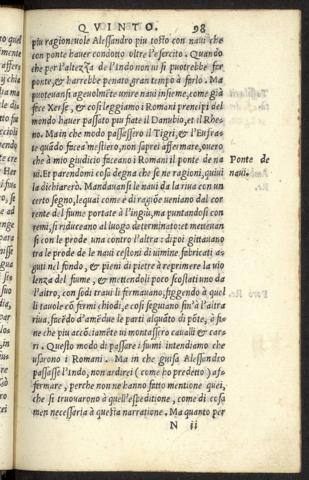 QVINTO. 98
piu ragioneuole Alessandro piu tosto con naui che
con ponte hauer condotto oltre l'esercito. Quando
che per l'altezza de l'Indo non ui si puotrebbe far
ponte, & harrebbe penato gran tempo à farlo. Ma
poteuansi ageuolmēte unire naui insieme, come già
fece Xerse, & cosi leggiamo i Romani prencipi del
mondo hauer passato piu fiate il Danubio, et il Rhe
no. Ma in che modo passassero il Tigri, & l'Eufra
te quādo facea mestiero, non saprei affermare, ouero
che à mio giudicio faceano i Romani il ponte de na
ui. Et parendomi cosa degna che se ne ragioni, quiui
la dichiarerò. Mandauansi le naui da la riua con un
certo segno, lequai come è di ragiōe ueniano dal cor
rente del fiume portate à l'ingiù, ma puntandosi con
remi, si riduceano al luogo determinato: et metteuan
si con le prode una contro l'altra: dipoi gittauano
tra le prode de le naui cestoni di uimine fabricati a-
guti nel fondo, & pieni di pietre à reprimere la uio
lenza del fiume, & mettendoli poco scostati uno da
l'altro, con sodi traui li firmauano, figgendo à quel
li tauole cō firmi chiodi, e cosi seguiano fin'à l'altra
riua, facēdo d'amēdue le parti alquāto di pōte, à fi=
ne che piu accōciamēte ui montassero caualli & car=
ri. Questo modo di passare i fiumi intendiamo che
usarono i Romani. Ma in che guisa Alessandro
passasse l'Indo, non ardirei (come ho predetto) af=
firmare, perche non ne hanno fatto mentione quei,
che si truouarono à quell'espeditione, come di cosa
men necessaria à questa narratione. Ma quanto per
N ii
Ponte de
naui.